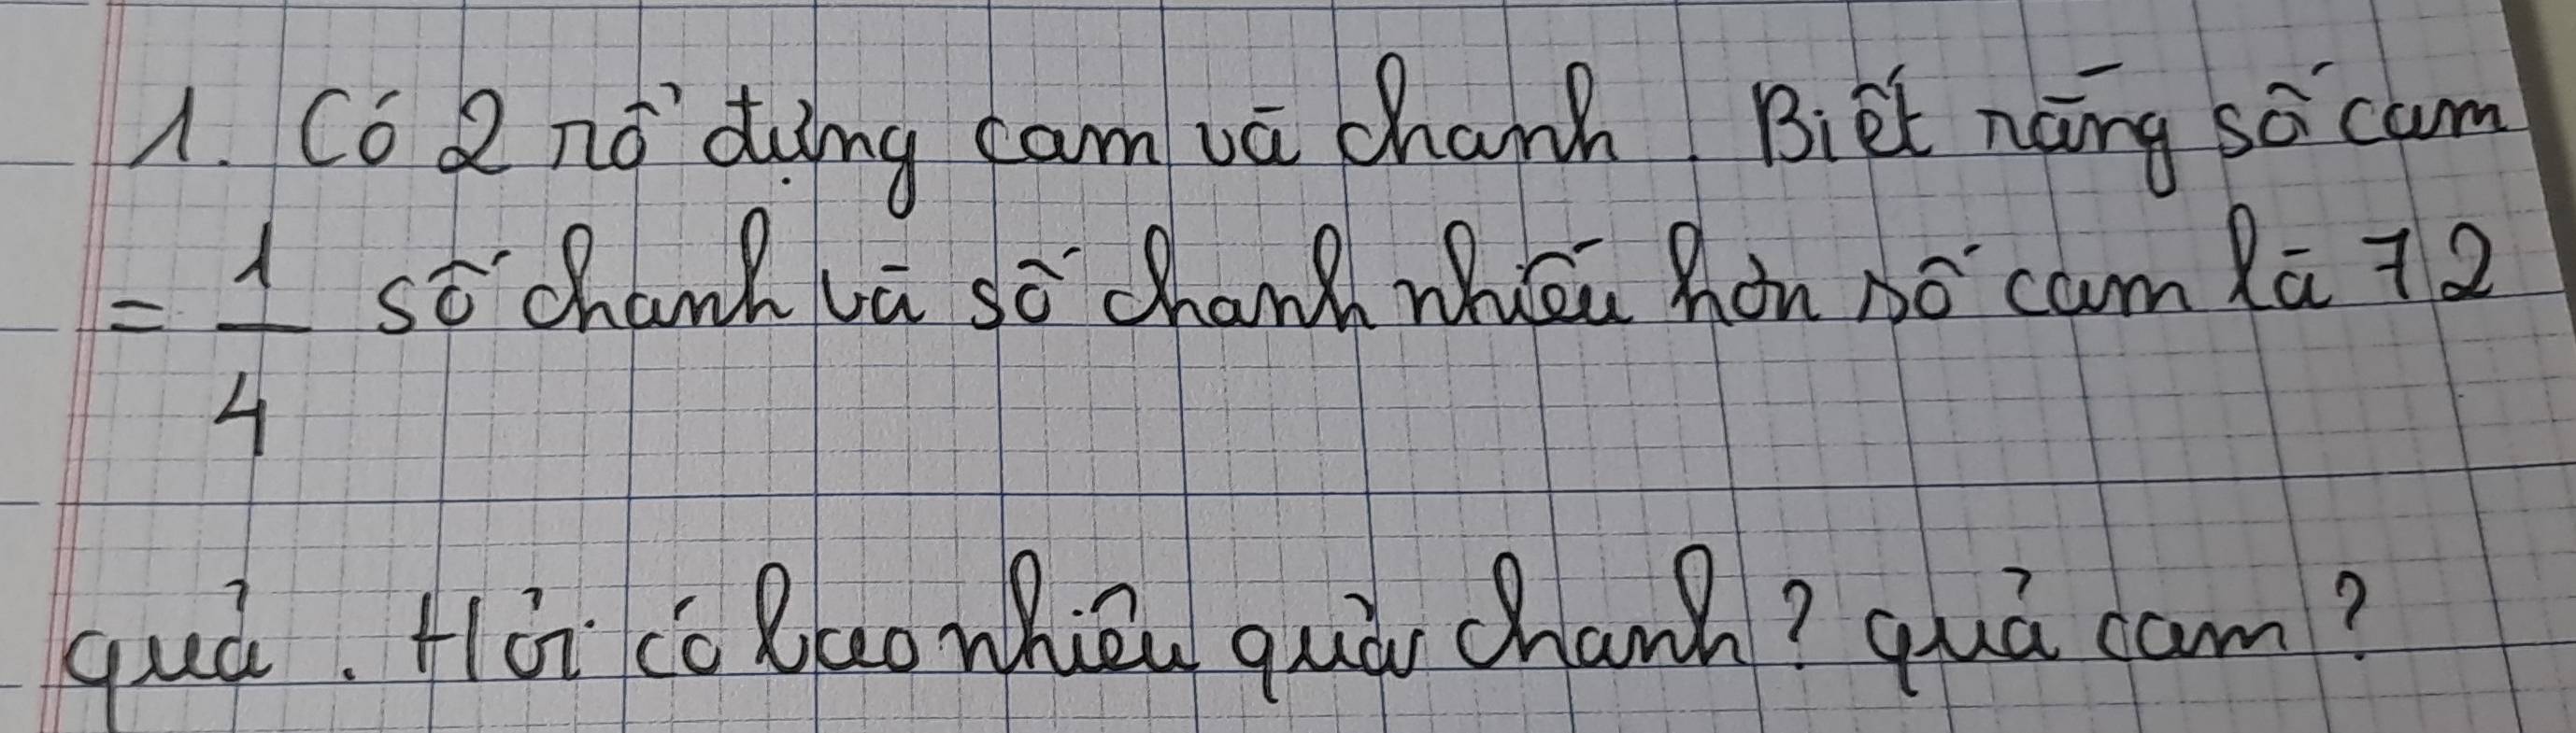 1. Có 2 rổ đựng cam và chanh. Biết rằng số cam
= 1/4 số chanh và số chanh nhiều hơn số cam là 72
quả. Hỏi có bao nhiêu quả chanh? quả cam?